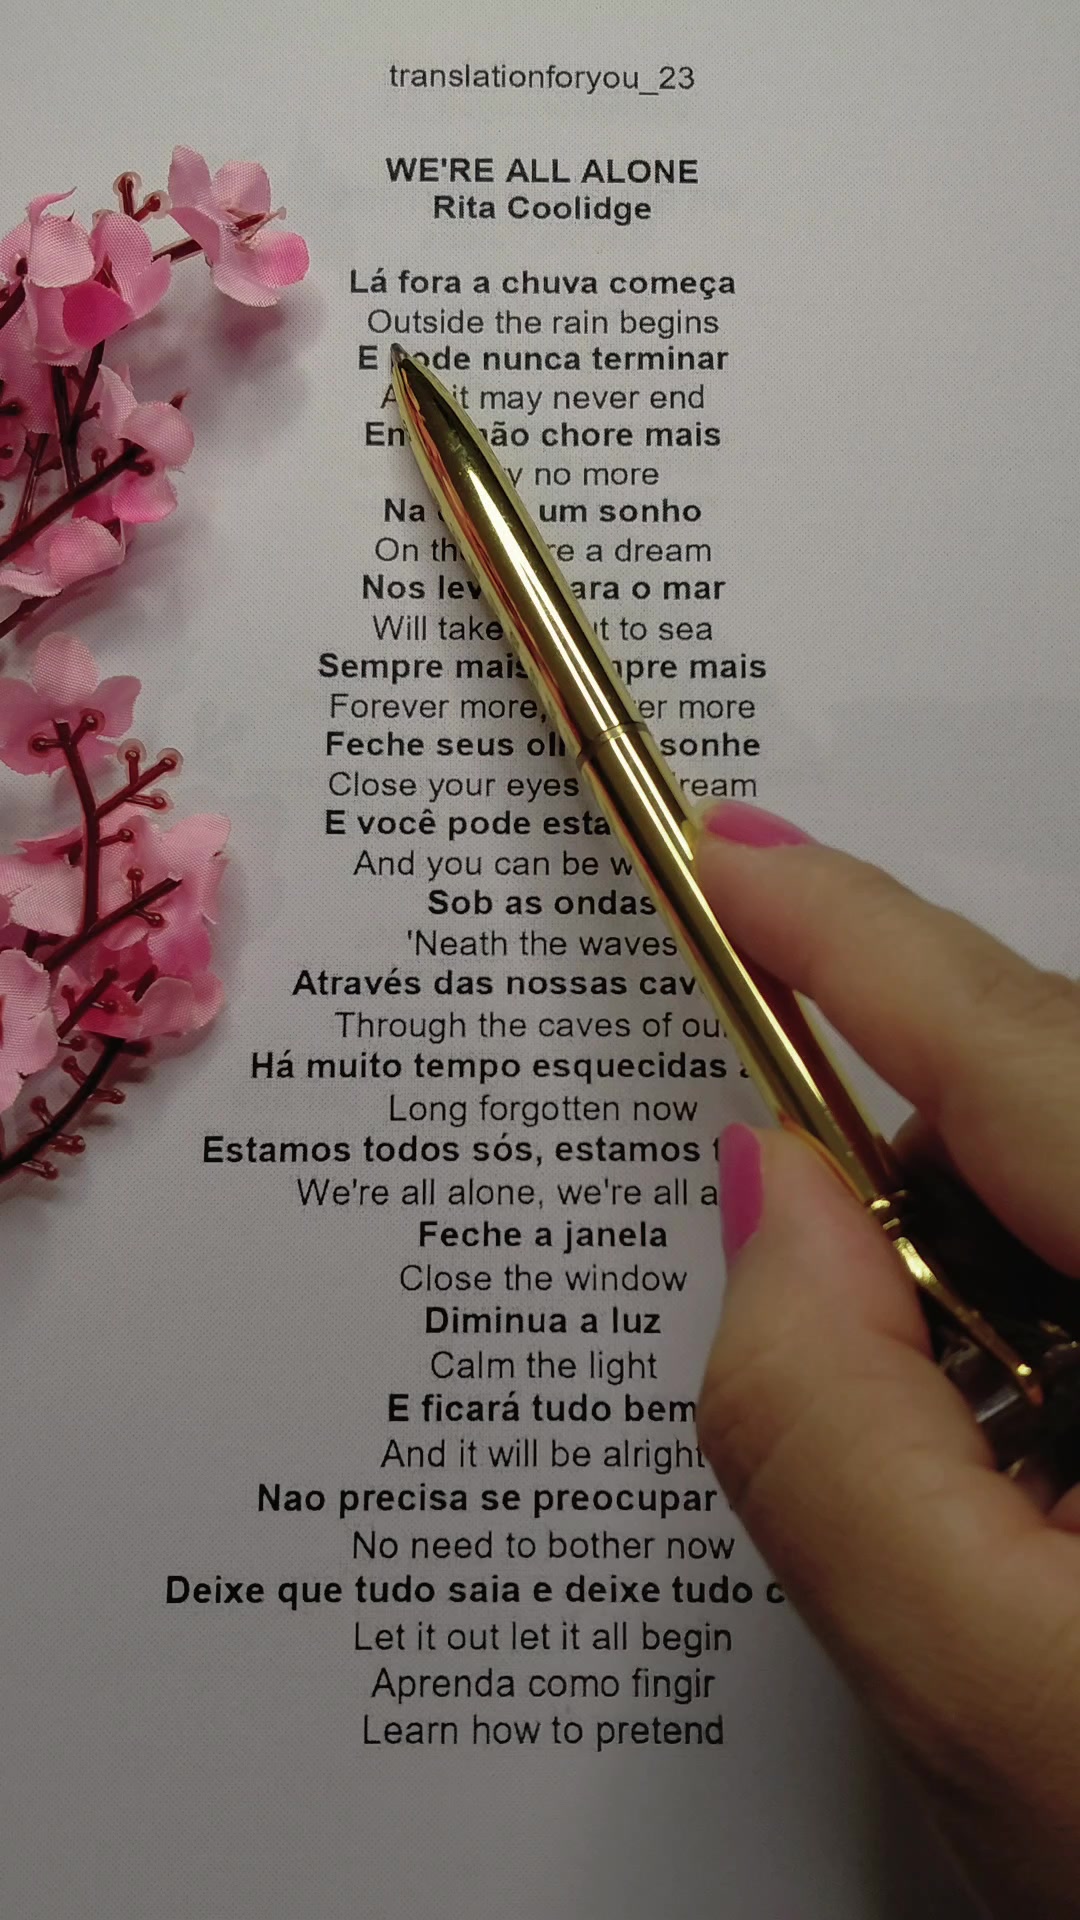 translationforyou_23
WE'RE ALL ALONE
Rita Coolidge
Lá fora a chuva começa
Outside the rain begins
E nunca terminar
it may never end
não chore mais
no more
Na um sonho
On a dream
Nos o mar
Will take to sea
Sempre mais mais
Forever more, more
Feche seus sonhe
Close your eyes
E você pode
And you can be
Sob as ondas
'Neath the waves
Através das nossas
Through the caves of
Há muito tempo esquecidas
Long forgotten now
Estamos todos sós, estamos
We're all alone, we're all
Feche a janela
Close the window
Diminua a luz
Calm the light
E ficará tudo bem
And it will be alright
Nao precisa se preocupar
No need to bother now
Deixe que tudo saia e deixe tudo
Let it out let it all begin
Aprenda como fingir
Learn how to pretend